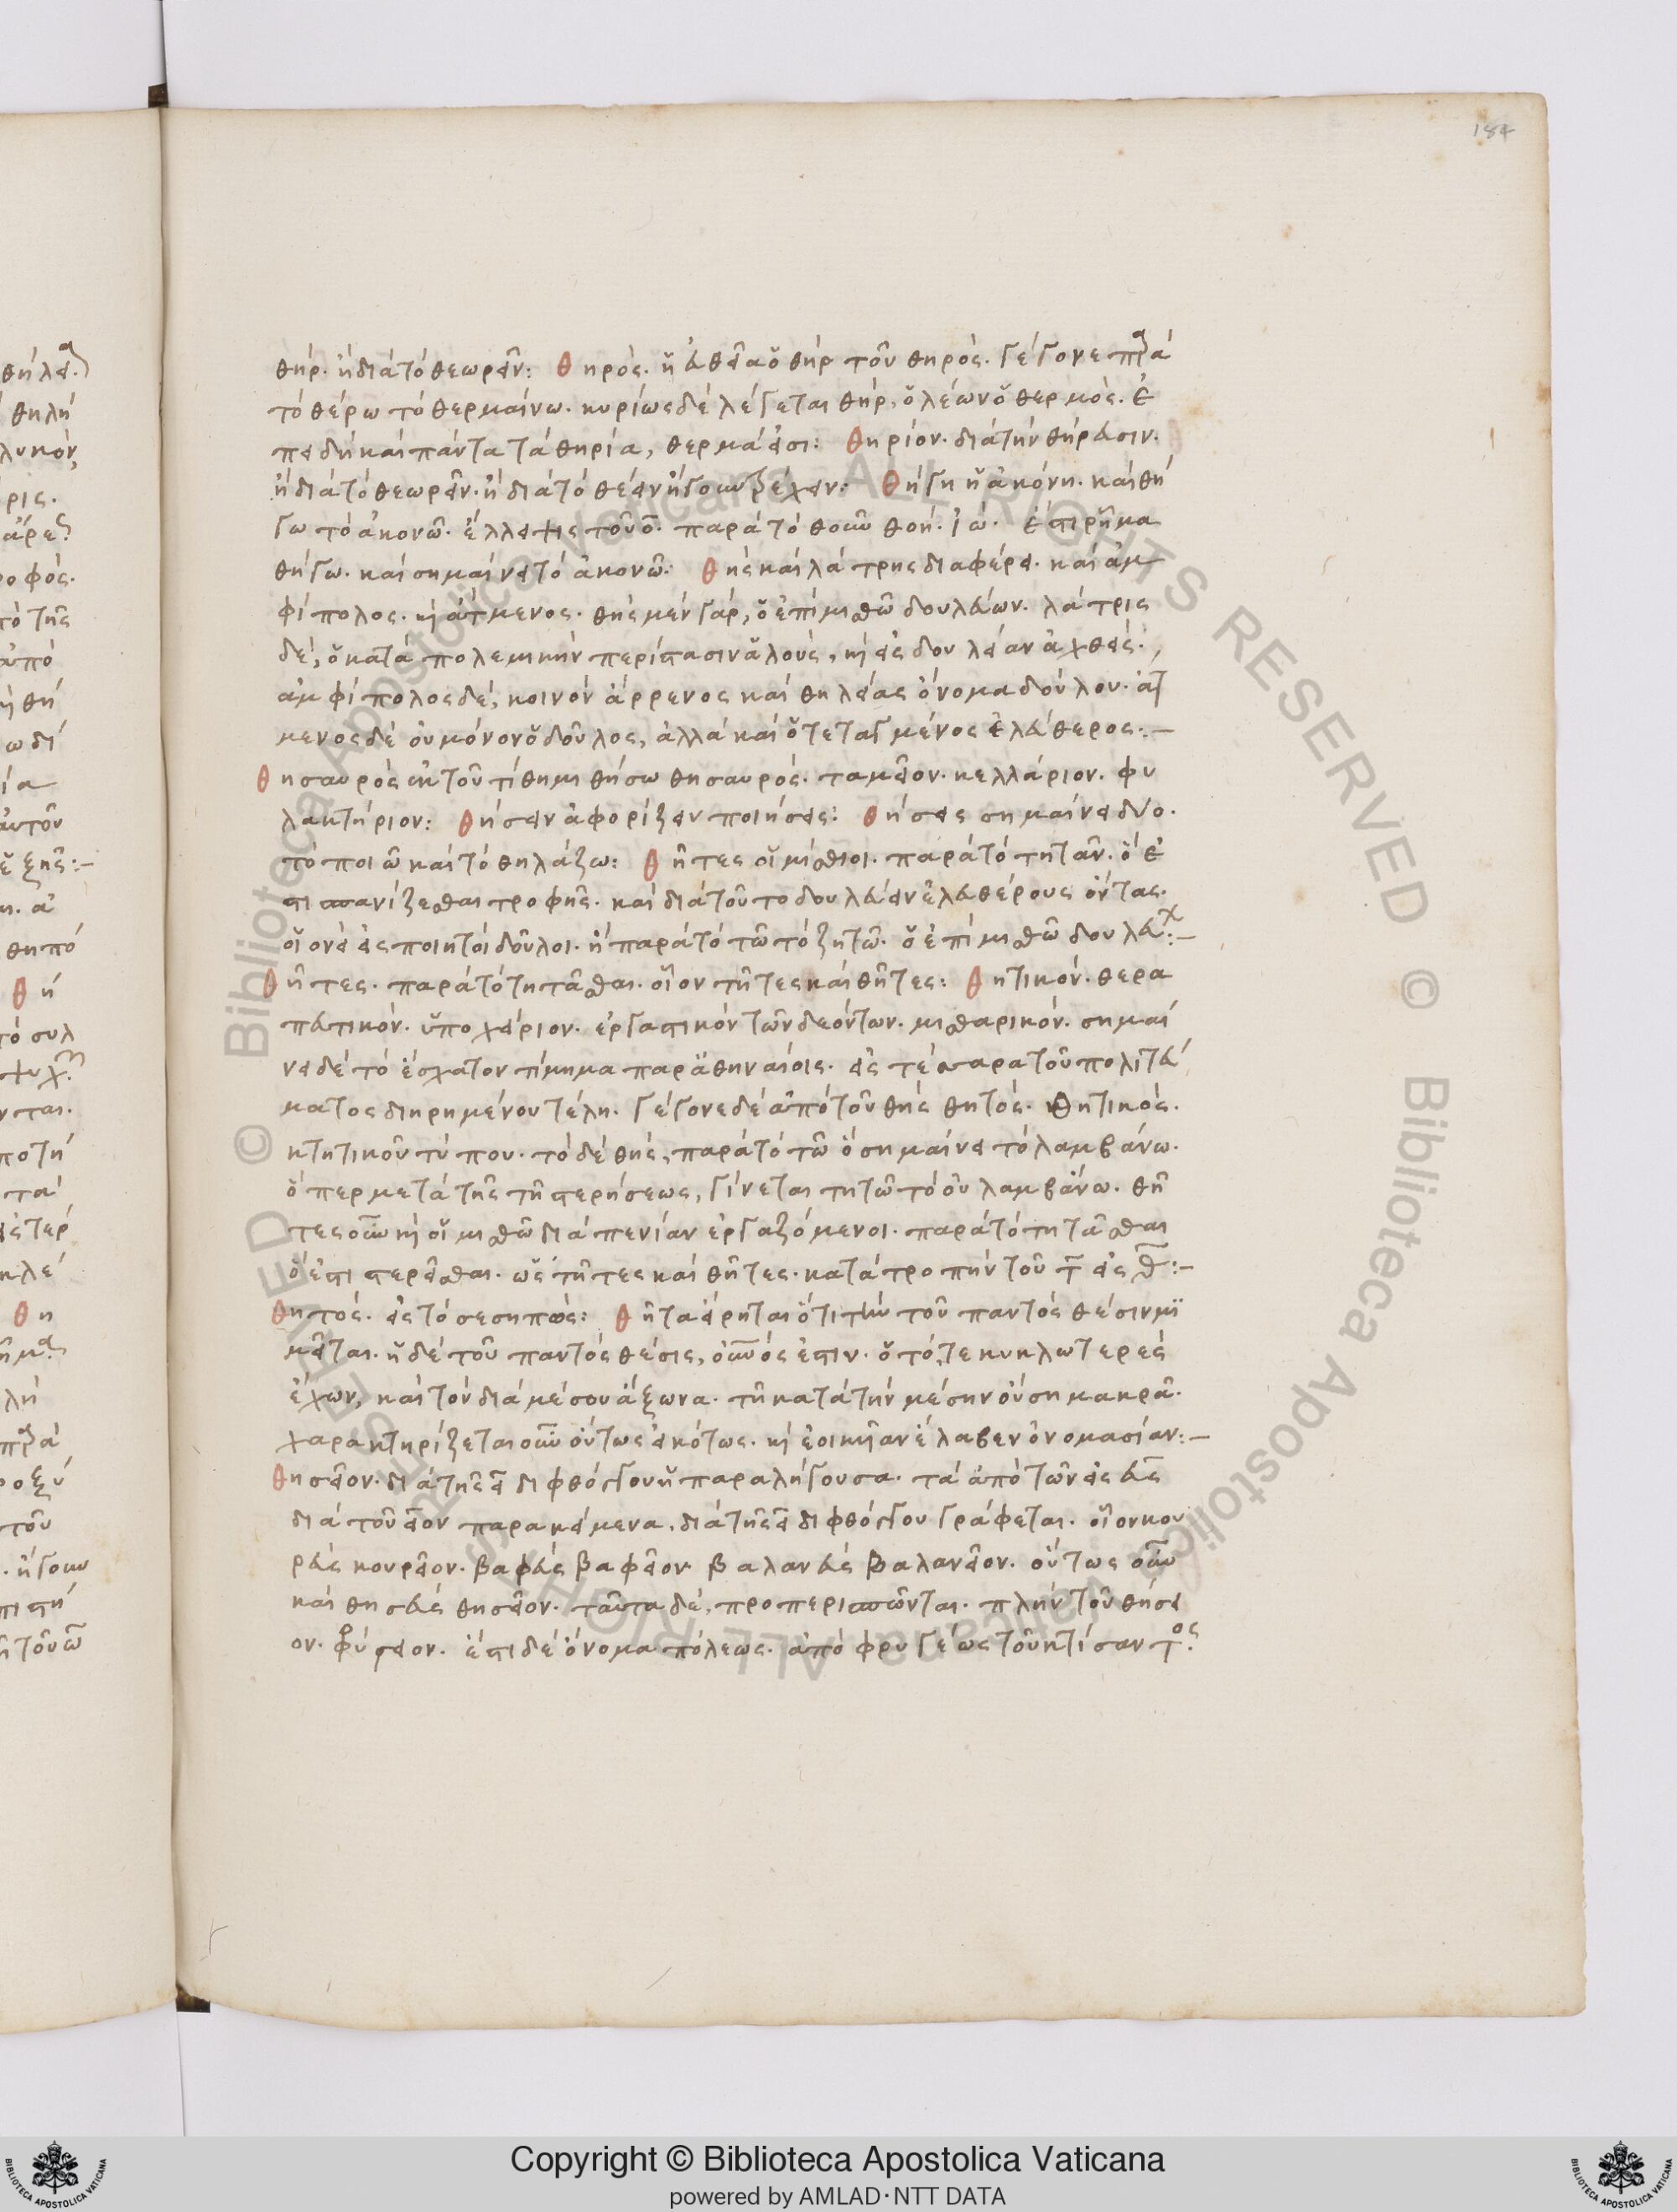 184
θήρ. ἢ διὰ τὸ θεωρεῖν: Θηρὸς. ἡ εὐθεῖα ὁ θήρ τοῦ θηρὸς. γέγονε παρὰ
τὸ θέρω τὸ θερμαίνω. κυρίως δὲ λέγεται θήρ, ὁ λέων ὁ θερμὸς. ἐ
πειδὴ καὶ πάντα τὰ θηρία, θερμά εἰσι: Θηρίον. διὰ τὴν θήρευσιν.
ἢ διὰ τὸ θεωρεῖν. ἢ διὰ τὸ θέειν ἤγουν τρέχειν: Θήγη ἡ ἀκόνη. καὶ θή
γω τὸ ἀκονῶ. ἔλλειψις τοῦ ο. παρὰ τὸ θοῶ θοή. ἰώ. ἐπίρρημα
θήγω. καὶ σημαίνει τὸ ἀκονῶ: Θὴς καὶ λάτρης διαφέρει. καὶ ἀμ
φίπολος. καὶ ἄτμενος. θὴς μὲν γάρ, ὁ ἐπὶ μισθῶ δουλεύων. λάτρις
δέ, ὁ κατὰ πολεμικὴν περίστασιν ἁλοὺς, καὶ εἰς δουλείαν ἀχθείς.
ἀμφίπολος δέ, κοινὸν ἄρρενος καὶ θηλείας ὄνομα δούλου. ἄτ
μενος δὲ οὐ μόνον ὁ δοῦλος, ἀλλὰ καὶ ὁ τεταγμένος ἐλεύθερος:–
Θησαυρὸς ἐκ τοῦ τίθημι θήσω θησαυρὸς. ταμεῖον. κελλάριον. φυ
λακτήριον: Θήσειν ἀφορίζειν ποιήσεις: Θήσεις σημαίνει δύο.
τὸ ποιῶ καὶ τὸ θηλάζω: Θῆτες οἱ μίσθιοι. παρὰ τὸ τητᾶν. ὅ ἐ
στι σπανίζεσθαι τροφῆς. καὶ διὰ τοῦτο δουλεύειν ἐλευθέρους ὄντας.
οἱονεὶ εἰσποιητοὶ δοῦλοι. ἢ παρὰ τὸ τῶ τὸ ζητῶ. ὁ ἐπὶ μισθῶ δουλεύ:–
Θῆτες. παρὰ τὸ τητᾶσθαι. οἷον τῆτες καὶ θῆτες: Θητικόν. θερα
πευτικόν. ὑποχείριον. ἐργαστικὸν τῶν δεόντων. μισθαρικόν. σημαί
νει δὲ τὸ ἔσχατον τίμημα παρ' ἀθηναίοις. εἰς τέσσαρα τοῦ πολιτεύ
ματος διηρημένου τέλη. γέγονε δὲ ἀπὸ τοῦ θὴς θητὸς. Θητικὸς.
κτητικοῦ τύπου. τὸ δὲ θὴς, παρὰ τὸ τῶ ὃ σημαίνει τὸ λαμβάνω.
ὅπερ μετὰ τῆς τη στερήσεως, γίνεται τητῶ τὸ οὐ λαμβάνω. θῆ
τες οὖν καὶ οἱ μισθῶ διὰ πενίαν ἐργαζόμενοι. παρὰ τὸ τητᾶσθαι
ὅ ἐστι στερεῖσθαι. ὡς τῆτες καὶ θῆτες. κατὰ τροπὴν τοῦ τ εἰς θ:–
Θητος. εἰς τὸ σεσηπὼς: Θῆτα εἴρηται ὅτι τὴν τοῦ παντὸς θέσιν μι
μεῖται. ἡ δὲ τοῦ παντὸς θέσις, οὐρανός ἐστιν. ὁ τό, τε κυκλωτερὲς
ἔχων, καὶ τὸν διὰ μέσου ἄξωνα. τῆ κατὰ τὴν μέσην οὔση μακρᾶ.
χαρακτηρίζεται οὖν οὕτως εἰκότως. καὶ ἐοικυῖαν ἔλαβεν ὀνομασίαν:–
Θησεῖον. διὰ τῆς ει διφθόγγου ἡ παραλήγουσα. τὰ ἀπὸ τῶν εἰς ευς
διὰ τοῦ ειον παρακείμενα, διὰ τῆς ει διφθόγγου γράφεται. οἷον κου
ρεὺς κουρεῖον. βαφεὺς βαφεῖον. βαλανεὺς βαλανεῖον. οὕτως οὖν
καὶ θησεὺς θησεῖον. ταῦτα δέ, προπερισπῶνται. πλὴν τοῦ θήσει
ον. φρύγειον. ἔστι δὲ ὄνομα πόλεως. ἀπὸ φρυγέως τοῦ κτίσαντος.
Copyright © Biblioteca Apostolica Vaticana
powered by AMLAD·NTT DATA